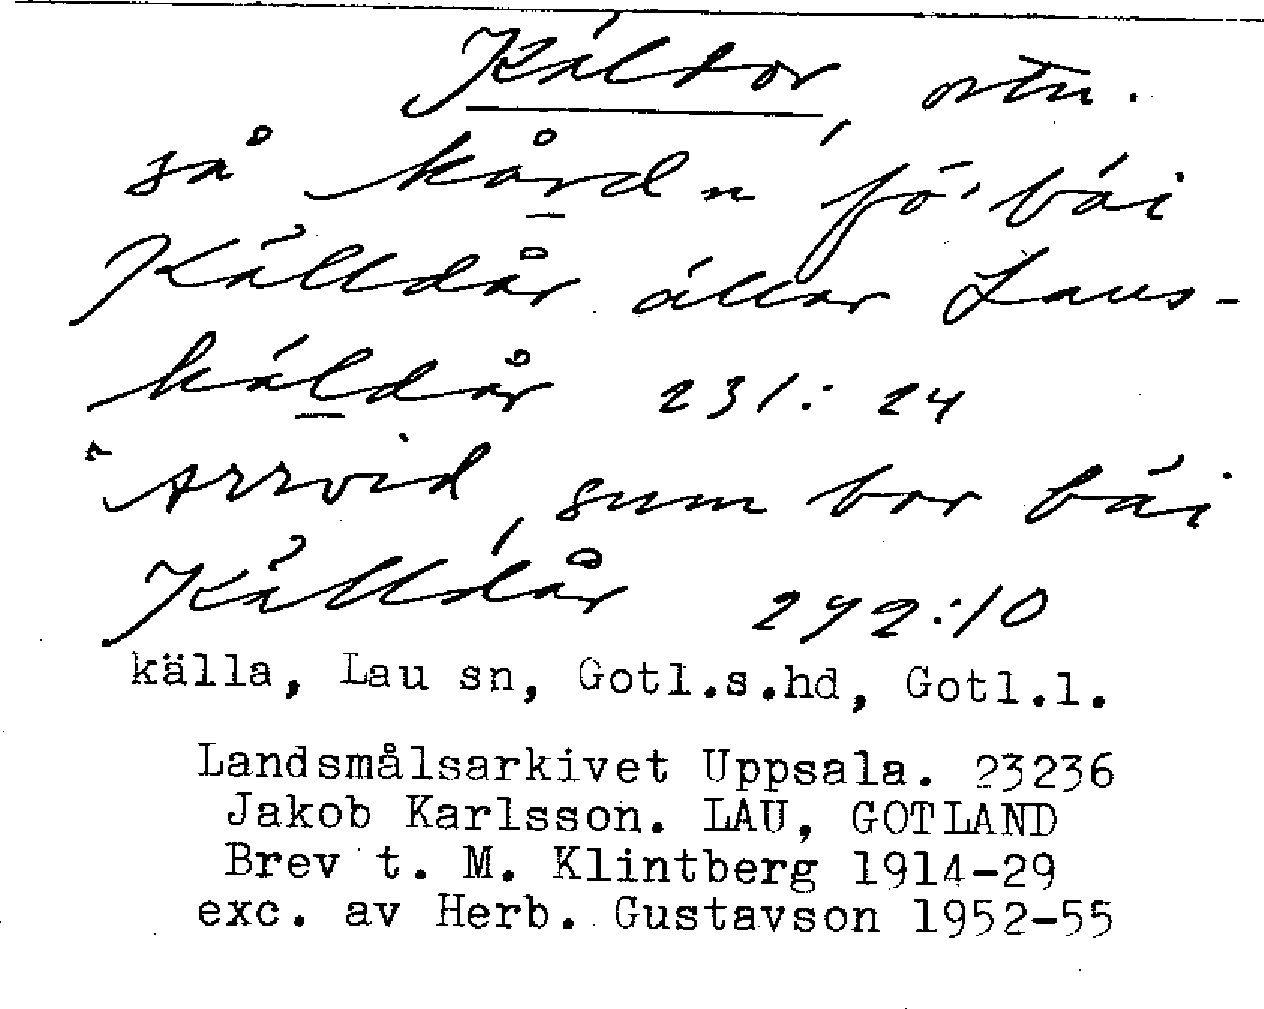 Káldor, ortn.
så kårdn fö' bái
Källdår állar Laus-
káldår 231:24
Arrvid, sum bor bái
Källdår 292:10
källa, Lau sn, Gotl.s.hd, Gotl.l.
Landsmålsarkivet Uppsala. 23236
Jakob Karlsson. LAU, GOTLAND
Brev t. M. Klintberg 1914-29
exc. av Herb. Gustavson 1952-55